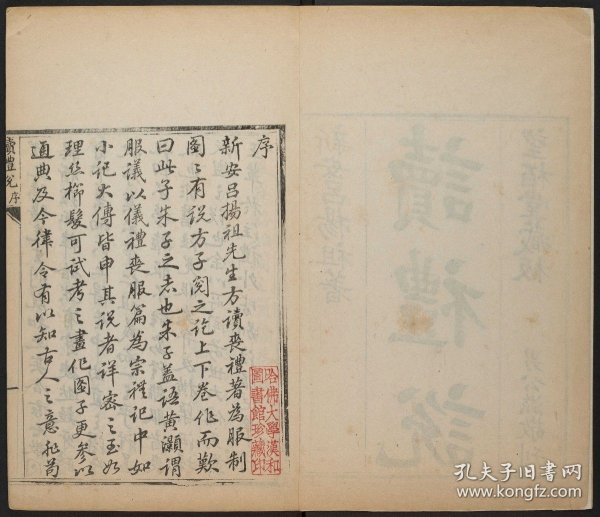 序
新安吕揚祖先生方讀喪禮著為服制
圖〻有説方子閲之訖上下卷作而歎
曰此子朱子之志也朱子蓋語黄灝謂
服議以儀禮喪服篇為宗禮記中如
小記大傳皆申其説者詳密之至如
理絲櫛髮可試考之畫作圖子更參以
通典及今律令有以知古人之意非苟
讀禮説 序
一
哈佛大學漢和
圖書館珍藏印
讀禮説
新安吕揚祖著
孔夫子旧书网
www.kongfz.com